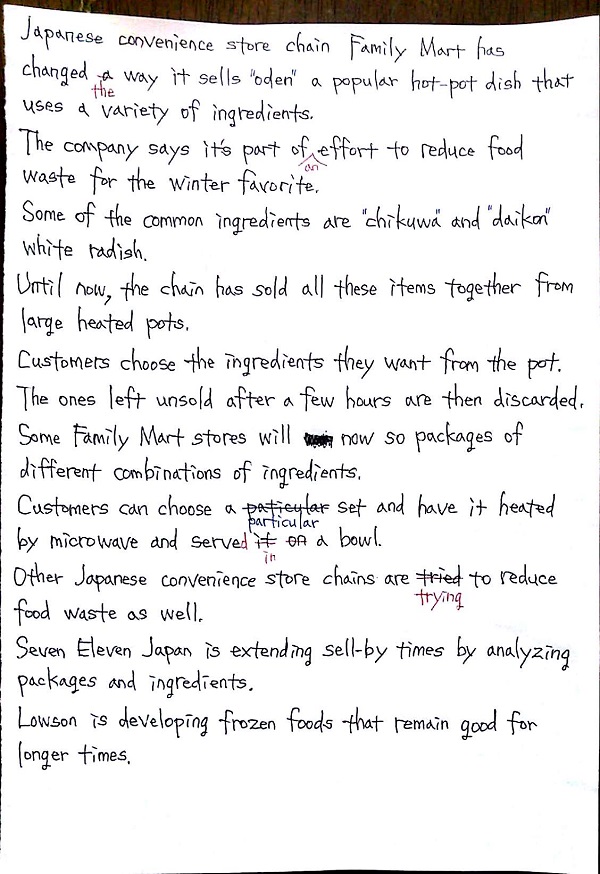 Japanese convenience store chain Family Mart has
changed a way it sells "oden" a popular hot-pot dish that
the
uses a variety of ingredients.
The company says it's part of effort to reduce food
an
waste for the winter favorite.
Some of the common ingredients are "chikuwa" and "daikon"
white radish.
Until now, the chain has sold all these items together from
large heated pots.
Customers choose the ingredients they want from the pot.
The ones left unsold after a few hours are then discarded.
Some Family Mart stores will now so packages of
different combinations of ingredients.
Customers can choose a paticular set and have it heated
particular
by microwave and served it on a bowl.
in
Other Japanese convenience store chains are tried to reduce
trying
food waste as well.
Seven Eleven Japan is extending sell-by times by analyzing
packages and ingredients.
Lowson is developing frozen foods that remain good for
longer times.